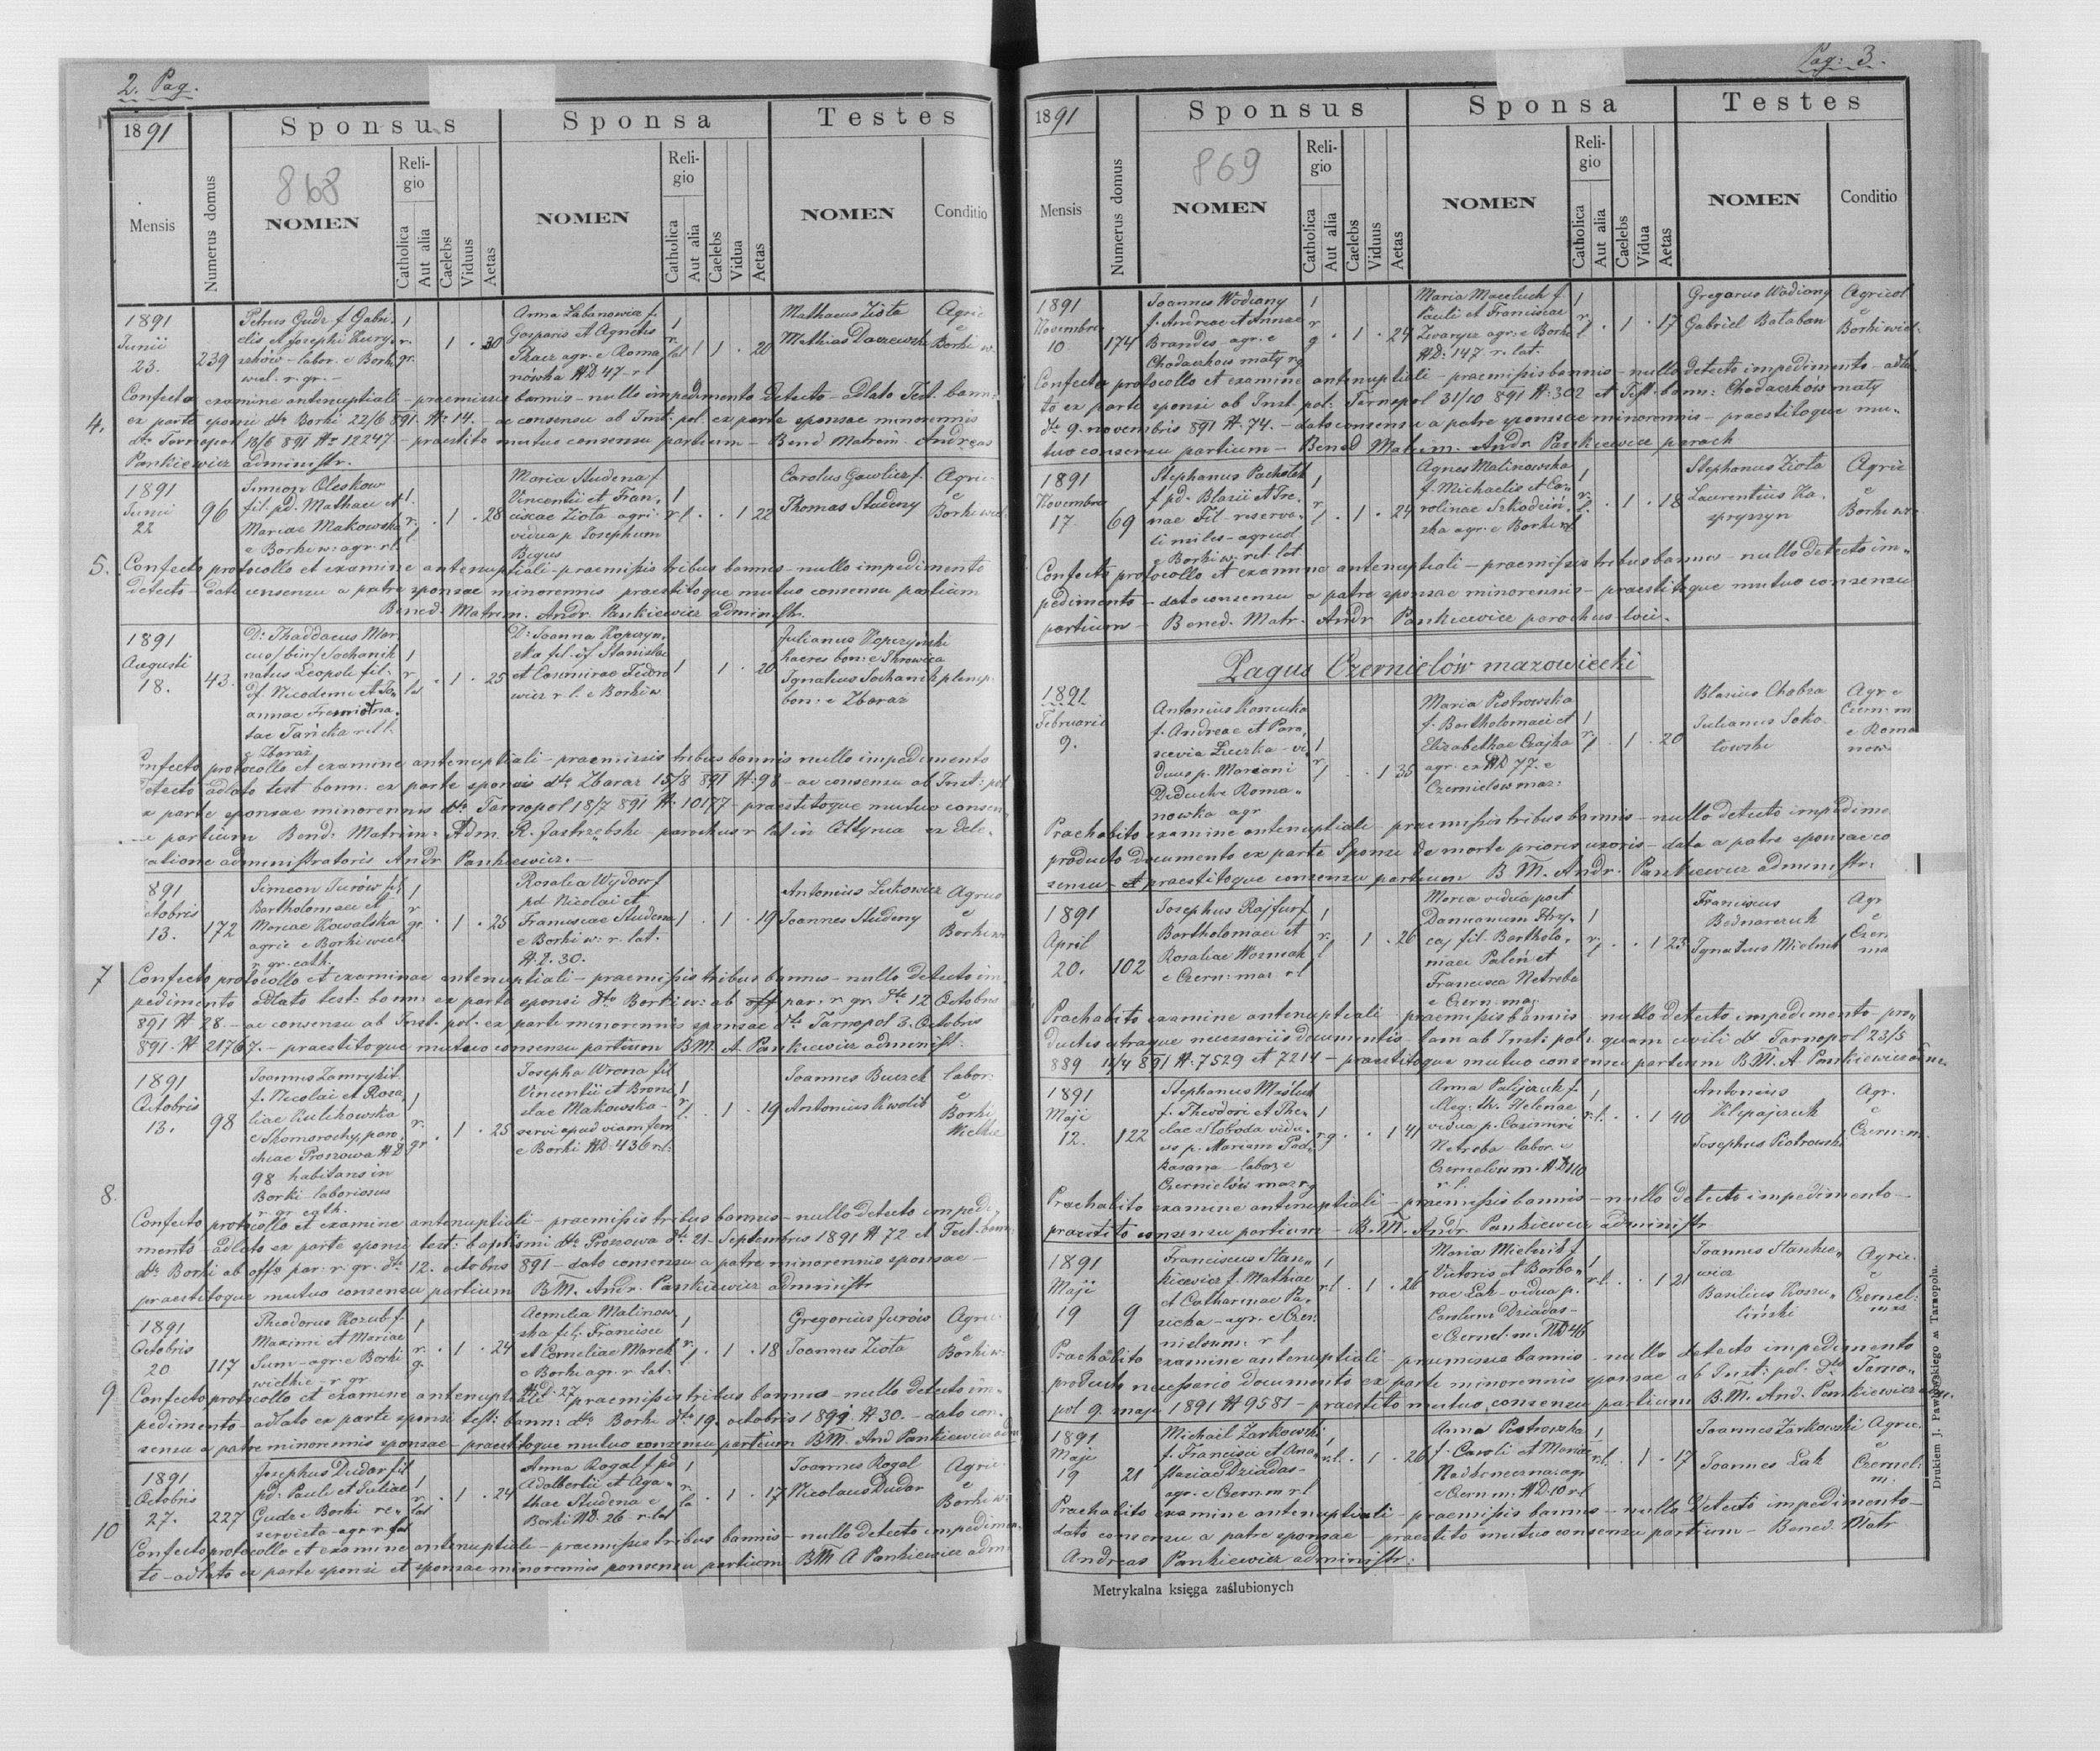 2. Pag.
1891
Sponsus
Sponsa
Testes
Mensis
Numerus domus
868
NOMEN
Religio
Catholica
Aut alia
Caelebs
Viduus
Aetas
NOMEN
Religio
Catholica
Aut alia
Caelebs
Vidua
Aetas
NOMEN
Conditio
4.
1891
Junii
23.
239
Petrus Gudz f. Gabri-
elis et Josephi
labor. e Borki
wiel. r. gr.
1
r.
gr.
1 . 30
Anna Labanowicz f.
Gasparis et Agnetis
Tkacz agr. e Roma
nówka ND 47 r l
1
r.
lat
1 . 20
Mathaeus Ziota
Mathias Daczewski
Agric
e
Borki w.
Confecto examine antenuptiali - praemissis bannis - nullo impedimento detecto - adlato Test. bann:
ex parte sponsi dto Borki 22/6 891 N: 14. - ac consensu ab Inst. pol. ex parte sponsae minorennis
dto Tarnopol 18/6 891 No 12247 - praestito mutuo consensu partium - Bened Matrem. Andreas
Pankiewicz administr.
5.
1891
Junii
22
96
Simeon Oleskow
fil. pd. Mathaei et
Mariae Makowska
e Borki w: agr. r l
1
r.
l
. 1 . 28
Maria Studena f
Vincentii et Fran-
ciscae Ziota - agri.
vidua p Josephum
Begus
1
r l . . 1 22
Carolus Gawlicz f.
Thomas Studeny
Agric
e
Borki wiel
Confecto protocollo et examine antenuptiali - praemissis tribus bannis - nullo impedimento
detecto - dato consensu a patre sponsae minorennis praestitoque mutuo consensu partium
Bened. Matrem. Andr. Pankiewicz administr.
1891
Augusti
18.
43.
D: Thaddaeus Mar
cus /bin/ Sochanik
natus Leopoli fil.
df. Nicodemi et Jo
annae
Taricka r l l.
e Zbaraz
1
r.
lat
. 1 . 25
D: Joanna Kopczyn
ska fil. df Stanislai
et Casimirae Fedoro
wicz r. l. e Borki w.
1 1 . 20
Julianus Kopczyński
haeres bon: e
Ignatius Sochanik plenip.
bon: e Zbaraz
Confecto protocollo et examine antenuptiali - praemissis tribus bannis nullo impedimento
detecto adlato test bann. ex parte sponsi dto Zbaraz 15/8 891 N: 98 - ac consensu ab Inst: pol
ex parte sponsae minorennis dto Tarnopol 18/7 891 N. 10177 - praestitoque mutuo consen
partium Bend: Matrim: Adm. R. Jastrzebski parochus r lat in ex dele.
gatione administratoris Andr Pankiewicz. -
7
891
Octobris
13.
172
Simeon Jurów fil
Bartholomaei et
Mariae Kowalska
agric e Borki wiel.
r. gr. cath.
1
r
gr.
. 1 . 25
Rosalia Wydow f
pd Nicolai et
Franciscae Studena
e Borki w: r. lat.
N. D. 30.
1 . 1 . 19
Antonius Lukowicz
Joannes Studeny
Agric
e
Borki w
Confecto protocollo et examinae antenuptiali - praemissis tribus bannis - nullo detecto im
pedimento adlato test: bann: ex parte sponsi dto Borki w: ab par. r. gr. dto 12 Octobris
891 N 28. - ac consensu ab Inst. pol. ex parte minorennis sponsae dto Tarnopol 3. Octobris
891. N 21767. - praestitoque mutuo consensu partium BM. A. Pankiewicz administ.
8.
1891
Octobris
13.
98
Joannes Zamrykit
f. Nicolai et Rosa
liae Kulikowska
e Skomorochy, paro,
chiae Proszowa ND
98 habitans in
Borki - laboriosus
r. gr. cath.
r.
gr.
. 1 . 25
Josepha Wrona fil
Vincentii et Broni
slae Makowska -
servi apud viam ferr.
e Borki ND. 436 r l:
1
r
l. . 1 . 19
Joannes Buczek
Antonius Kwolik
labor.
e
Borki
Wielkie
Confecto protocollo et examine antenuptiali - praemissis tribus bannis - nullo detecto impedi,
mento - adlato ex parte sponsi test: baptismi dto Proszowa dto 21. Septembris 1891 N 72 et Test. bann
dto Borki ab offo par. r. gr. dto 12. octobris 891 - dato consensu a patre minorennis sponsae -
praestitoque mutuo consensu partium BM. Andr. Pankiewicz administr
9
1891
Octobris
20
117
Theodorus Kozub f.
Maximi et Mariae
Sum - agr. e Borki
wielkie - r gr
1
r.
g.
. 1 . 24
Aemilia Malinow,
ska fil. Francisci
et Corneliae Marek
e Borki agr. r. lat.
N. D. 27
r.
l
. 1 . 18
Gregorius Jurów
Joannes Ziota
Agric
e
Borki w:
Confecto protocollo et examine antenuptiali - praemissis tribus bannis - nullo detecto im=
pedimento - adlato ex parte sponsi test: bann: dto Borki dto 19. octobris 1891 N 30. - dato con,
sensu a patre minorennis sponsae - praestitoque mutuo consensu partium BM. And Pankiewicz adm
10
1891
Octobris
27.
227
Josephus Dudar fil
pd. Pauli et Juliae
Gudz e Borki re-
servista - agr. r. lat
1
r
lat
. 1 . 24
Anna Rogal f pd
Adalberti et Aga-
thae Studena e
Borki ND. 26 - r. lat
1
r.
la
. 1 . 17
Joannes Rogal
Nicolaus Dudar
Agric
e
Borki w.
Confecto protocollo et examine antenuptiali - praemissis tribus bannis - nullo detecto impedimen
to - adlato ex parte sponsi et sponsae minorennis consensu partium BM A Pankiewicz adm
Pag: 3.
1891
Sponsus
Sponsa
Testes
Mensis
Numerus domus
869
NOMEN
Religio
Catholica
Aut alia
Caelebs
Viduus
Aetas
NOMEN
Religio
Catholica
Aut alia
Caelebs
Vidua
Aetas
NOMEN
Conditio
1891
Novembris
10
174
Joannes Wodiany
f. Andreae et Annae
Brandes - agr. e
Chodaczkow maty r g
1
r
g . 1 . 24
Maria Maceluch f.
Pauli et Franciscae
Zwarycz agr. e Borki
ND: 147. r. lat.
1
r.
l . 1 . 17
Gregorius Wodiany
Gabriel Bataban
Agricol
e
Borki wiel.
Confecto protocollo et examine antenuptiali - praemissis bannis - nullo detecto impedimento - adla
to ex parte sponsi ab Inst: pol: Tarnopol 31/10 891 N: 302 et Test. bann: Chodaczków maty
dto 9. novembris 891 N. 74. - dato consensu a patre sponsae minorennis - praestitoque mu,
tuo consensu partium - Bened Matrim. Andr Pankiewicz paroch
1891
Novembris
17
69
Stephanus Pacholek
f pd. Blasii et Ire.
nae Fil - reserva-
ti miles - agricol
e Borki w. rit. lat
1
r
l . 1 . 24
Agnes Malinowska
f. Michaelis et Ca-
rolinae Szkodziń,
ska agr. e Borki w
r.
l. . 1 . 18
Stephanus Ziota
Laurentius Za.
spryszyn
Agric
e
Borki w.
Confecto protocollo et examine antenuptiali - praemissis tribus bannis - nullo detecto im=
pedimento - dato consensu a patre sponsae minorennis - praestitoque mutuo consensu
partium - Bened. Matr. Andr Pankiewicz parochus loci.
Pagus Czernielów mazowiecki
1891
Februarii
9.
Antonius Kanuka
f. Andreae et Para,
scevia Luczka - vi-
duus p. Mariani
Diduch e Roma-
nowka agr
1
r
l . . 1 35
Maria Piotrowska
f. Bartholomaei et
Elizabethae Czajka
agr. ex ND 77. e
Czernielow maz:
1
r
l . 1 . 20
Blasius Chobza
Julianus Soko.
towski
Agr e
Czern: m
e Roma
now.
Praehabito examine antenuptiali - praemissis tribus bannis - nullo detecto impedime
producto documento ex parte Sponsi de morte prioris uxoris - data a patre sponsae co
sensu - et praestitoque consensu partium B M. Andr. Pankiewicz administr:
1891
April
20.
102
Josephus Rajfur f
Bartholomaei et
Rosaliae Wozniak
e Czern: maz r l
1
r.
l
1 . 26
Maria vidua post
Damianum Hry-
caj fil. Bartholo,
maei Paleń et
Francisca Netreba
e Czern. maz.
1
r.
l . . 1 23
Franciscus
Bednarczuk
Ignatius Mielnik
Agr
e
Czern
ma
Praehabito examine antenuptiali - praemissis bannis - nullo detecto impedimento - pro,
ductis utraque necessariis documentis - tam ab Inst: pol: quam civili dto Tarnopol 23/5
889 11/4 891 N. 7529 et 7214 - praestitoque mutuo consensu partium B.M. A. Pankiewicz
1891
Maji
12.
122
Stephanus Maśluch
f. Theodori et The-
clae Sloboda vidu-
us p. Mariam Pod-
kasana - labor e
Czernielów maz r g
1
r g . . 1 41
Anna Palijczuk f.
illeg: th. Helenae
vidua p. Casimiri
Netreba labor. e
Czernielów m. ND 110
r. l.
1
r. l. . . 1 40
Antonius
Klepajczuk
Josephus Piotrowski
Agr.
e
Czern: m
Praehabito examine antenuptiali - praemissis bannis - nullo detecto impedimento -
praestito consensu partium - B. M. Andr Pankiewicz administr
1891
Maji
19
9
Franciscus Stan-
kiewicz f. Mathiae
et Catharinae Pa-
sicka - agr. e Czer.
nielow m: r l
1
r l. . 1 . 26
Maria Mielnik f
Victoris et Barba-
rae Lak - vidua p.
Carolum Dziadas -
e Czernel. m. ND 46
1
r l. . . 1 21
Joannes Stankie-
wicz
Basilius Kozu-
liński
Agric.
e
Czernel:
maz
Praehabito examine antenuptiali - praemissis bannis - nullo detecto impedimento
producto necessario documento ex parte minorennis sponsae ab Inst: pol: dto Tarno-
pol 9. maji 1891 N 9581 - praestito mutuo consensu partium B.M. And. Pankiewicz
1891
Maji
19
21
Michael Zarkowski
f. Francisci et Ana-
stasiae Dziadas -
agr. e Czern. m r l
1
r l. . 1 . 26
Anna Piotrowska
f. Caroli et Mariae
Nadboneczna: agr
e Czern m. ND 10 r l
1
r l. . 1 . 17
Joannes Zarkowski
Joannes Lak
Agric.
e
Czernel:
m.
Praehabito examine antenuptiali - praemissis bannis - nullo detecto impedimento -
dato consensu a patre sponsae - praestito mutuo consensu partium - Bened. Matr
Andreas Pankiewicz administr:
Metrykalna księga zaślubionych
Drukiem J. Pawłowskiego w Tarnopolu.